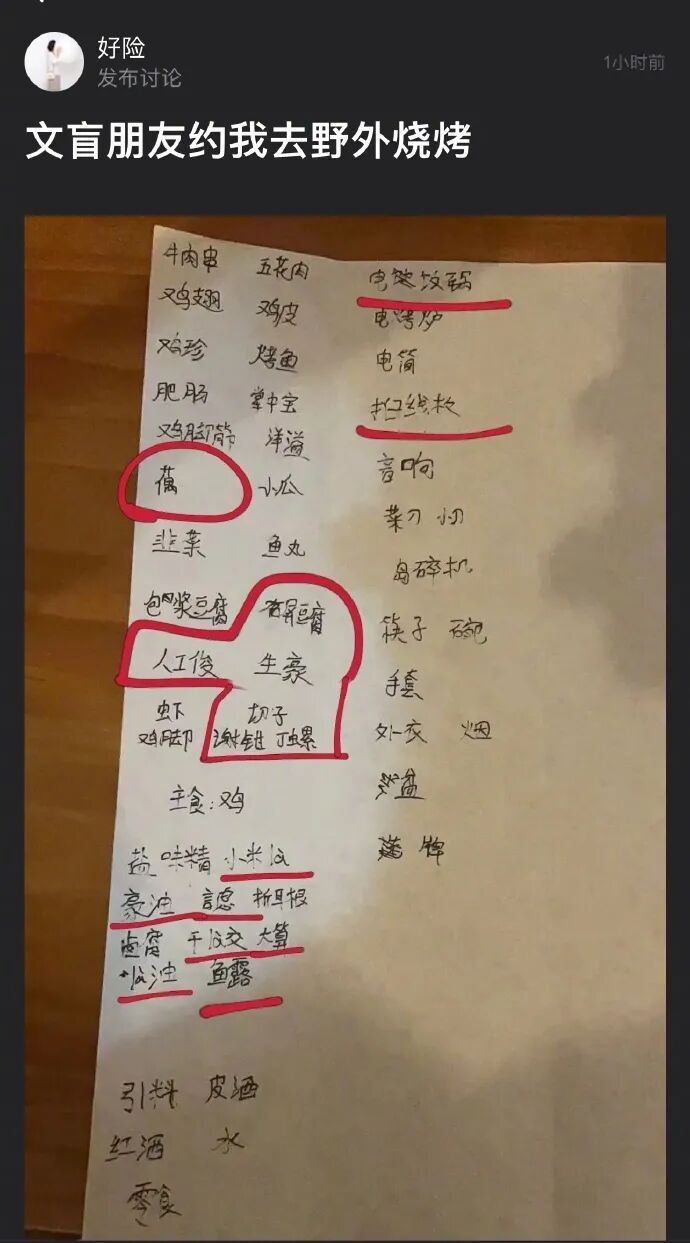 好险
发布讨论
1小时前
文盲朋友约我去野外烧烤
牛肉串 五花肉
鸡翅 鸡皮
鸡珍 烤鱼
肥肠 掌中宝
鸡脚筋 洋溢
小瓜
韭菜 鱼丸
包浆豆腐 豆腐
人工俊 生豪
虾 切子
鸡脚 丁螺
主食:鸡
盐 味精 小米
豪油 折耳根
卤腐 干 大算
油 鱼露
引料 皮酒
红酒 水
零食
电饭锅
电烤炉
电筒
拖线板
音响
菜刀 小刀
岛碎机
筷子 碗
手套
外衣 烟
盆